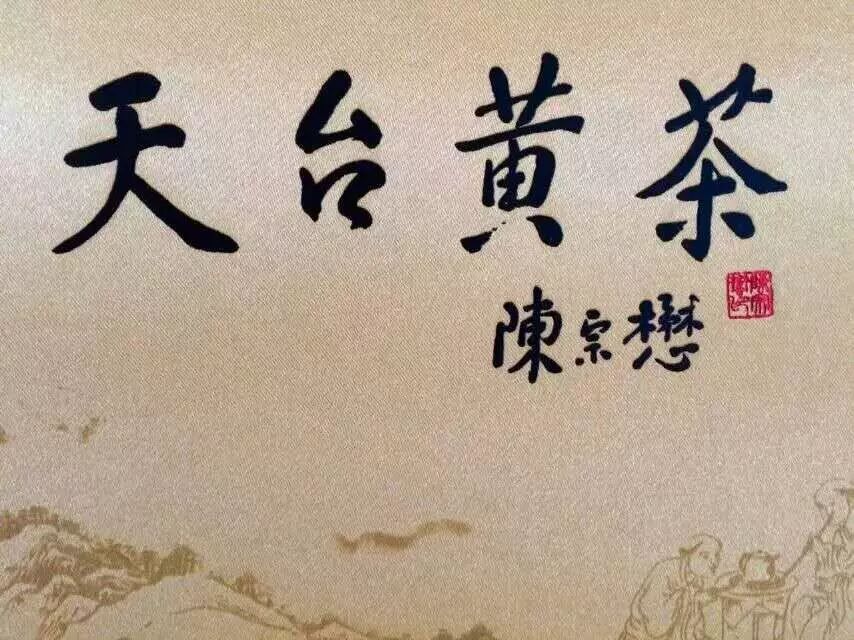 天台黄茶
陳宗懋